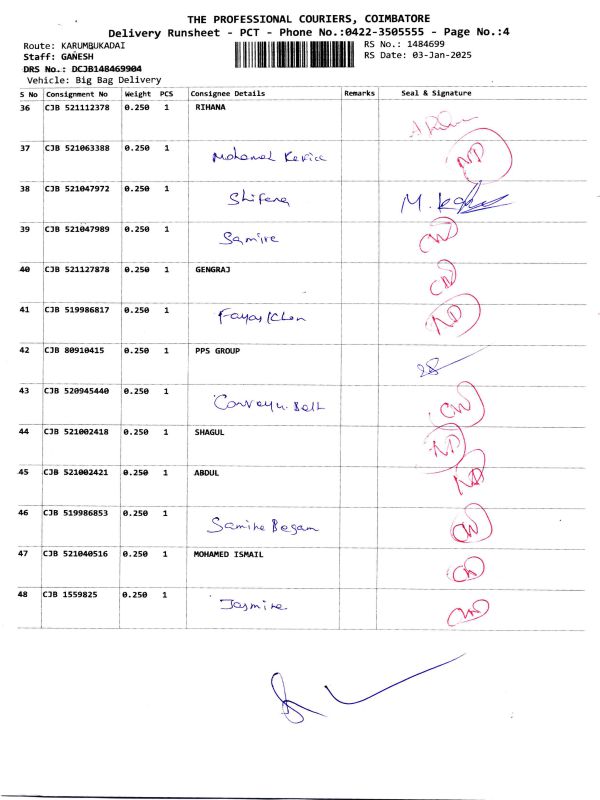 THE PROFESSIONAL COURIERS, COIMBATORE
Delivery Runsheet - PCT - Phone No.:0422-3505555 - Page No.:4
Route: KARUMBUKADAI
RS No.: 1484699
Staff: GANESH
RS Date: 03-Jan-2025
DRS No.: DCJB148469904
Vehicle: Big Bag Delivery
S No Consignment No Weight PCS Consignee Details Remarks Seal & Signature
36 CJB 521112378 0.250 1 RIHANA
37 CJB 521063388 0.250 1 Mohamed ND
38 CJB 521047972 0.250 1 Shifena
39 CJB 521047989 0.250 1 Samire CN
40 CJB 521127878 0.250 1 GENGRAJ CN
41 CJB 519986817 0.250 1 Fayas Khan ND
42 CJB 80910415 0.250 1 PPS GROUP
43 CJB 520945440 0.250 1 Belt CN
44 CJB 521002418 0.250 1 SHAGUL ND
45 CJB 521002421 0.250 1 ABDUL ND
46 CJB 519986853 0.250 1 Samine Begam CN
47 CJB 521040516 0.250 1 MOHAMED ISMAIL CN
48 CJB 1559825 0.250 1 Jasmine CN